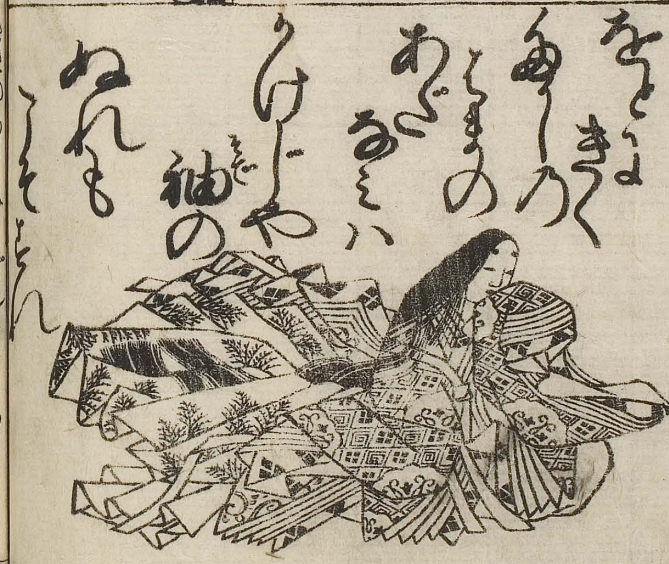 をとに
きく
高しの
はまの
あだ
なみハ
かけじや
袖の
そで
ぬれも
こそすれ